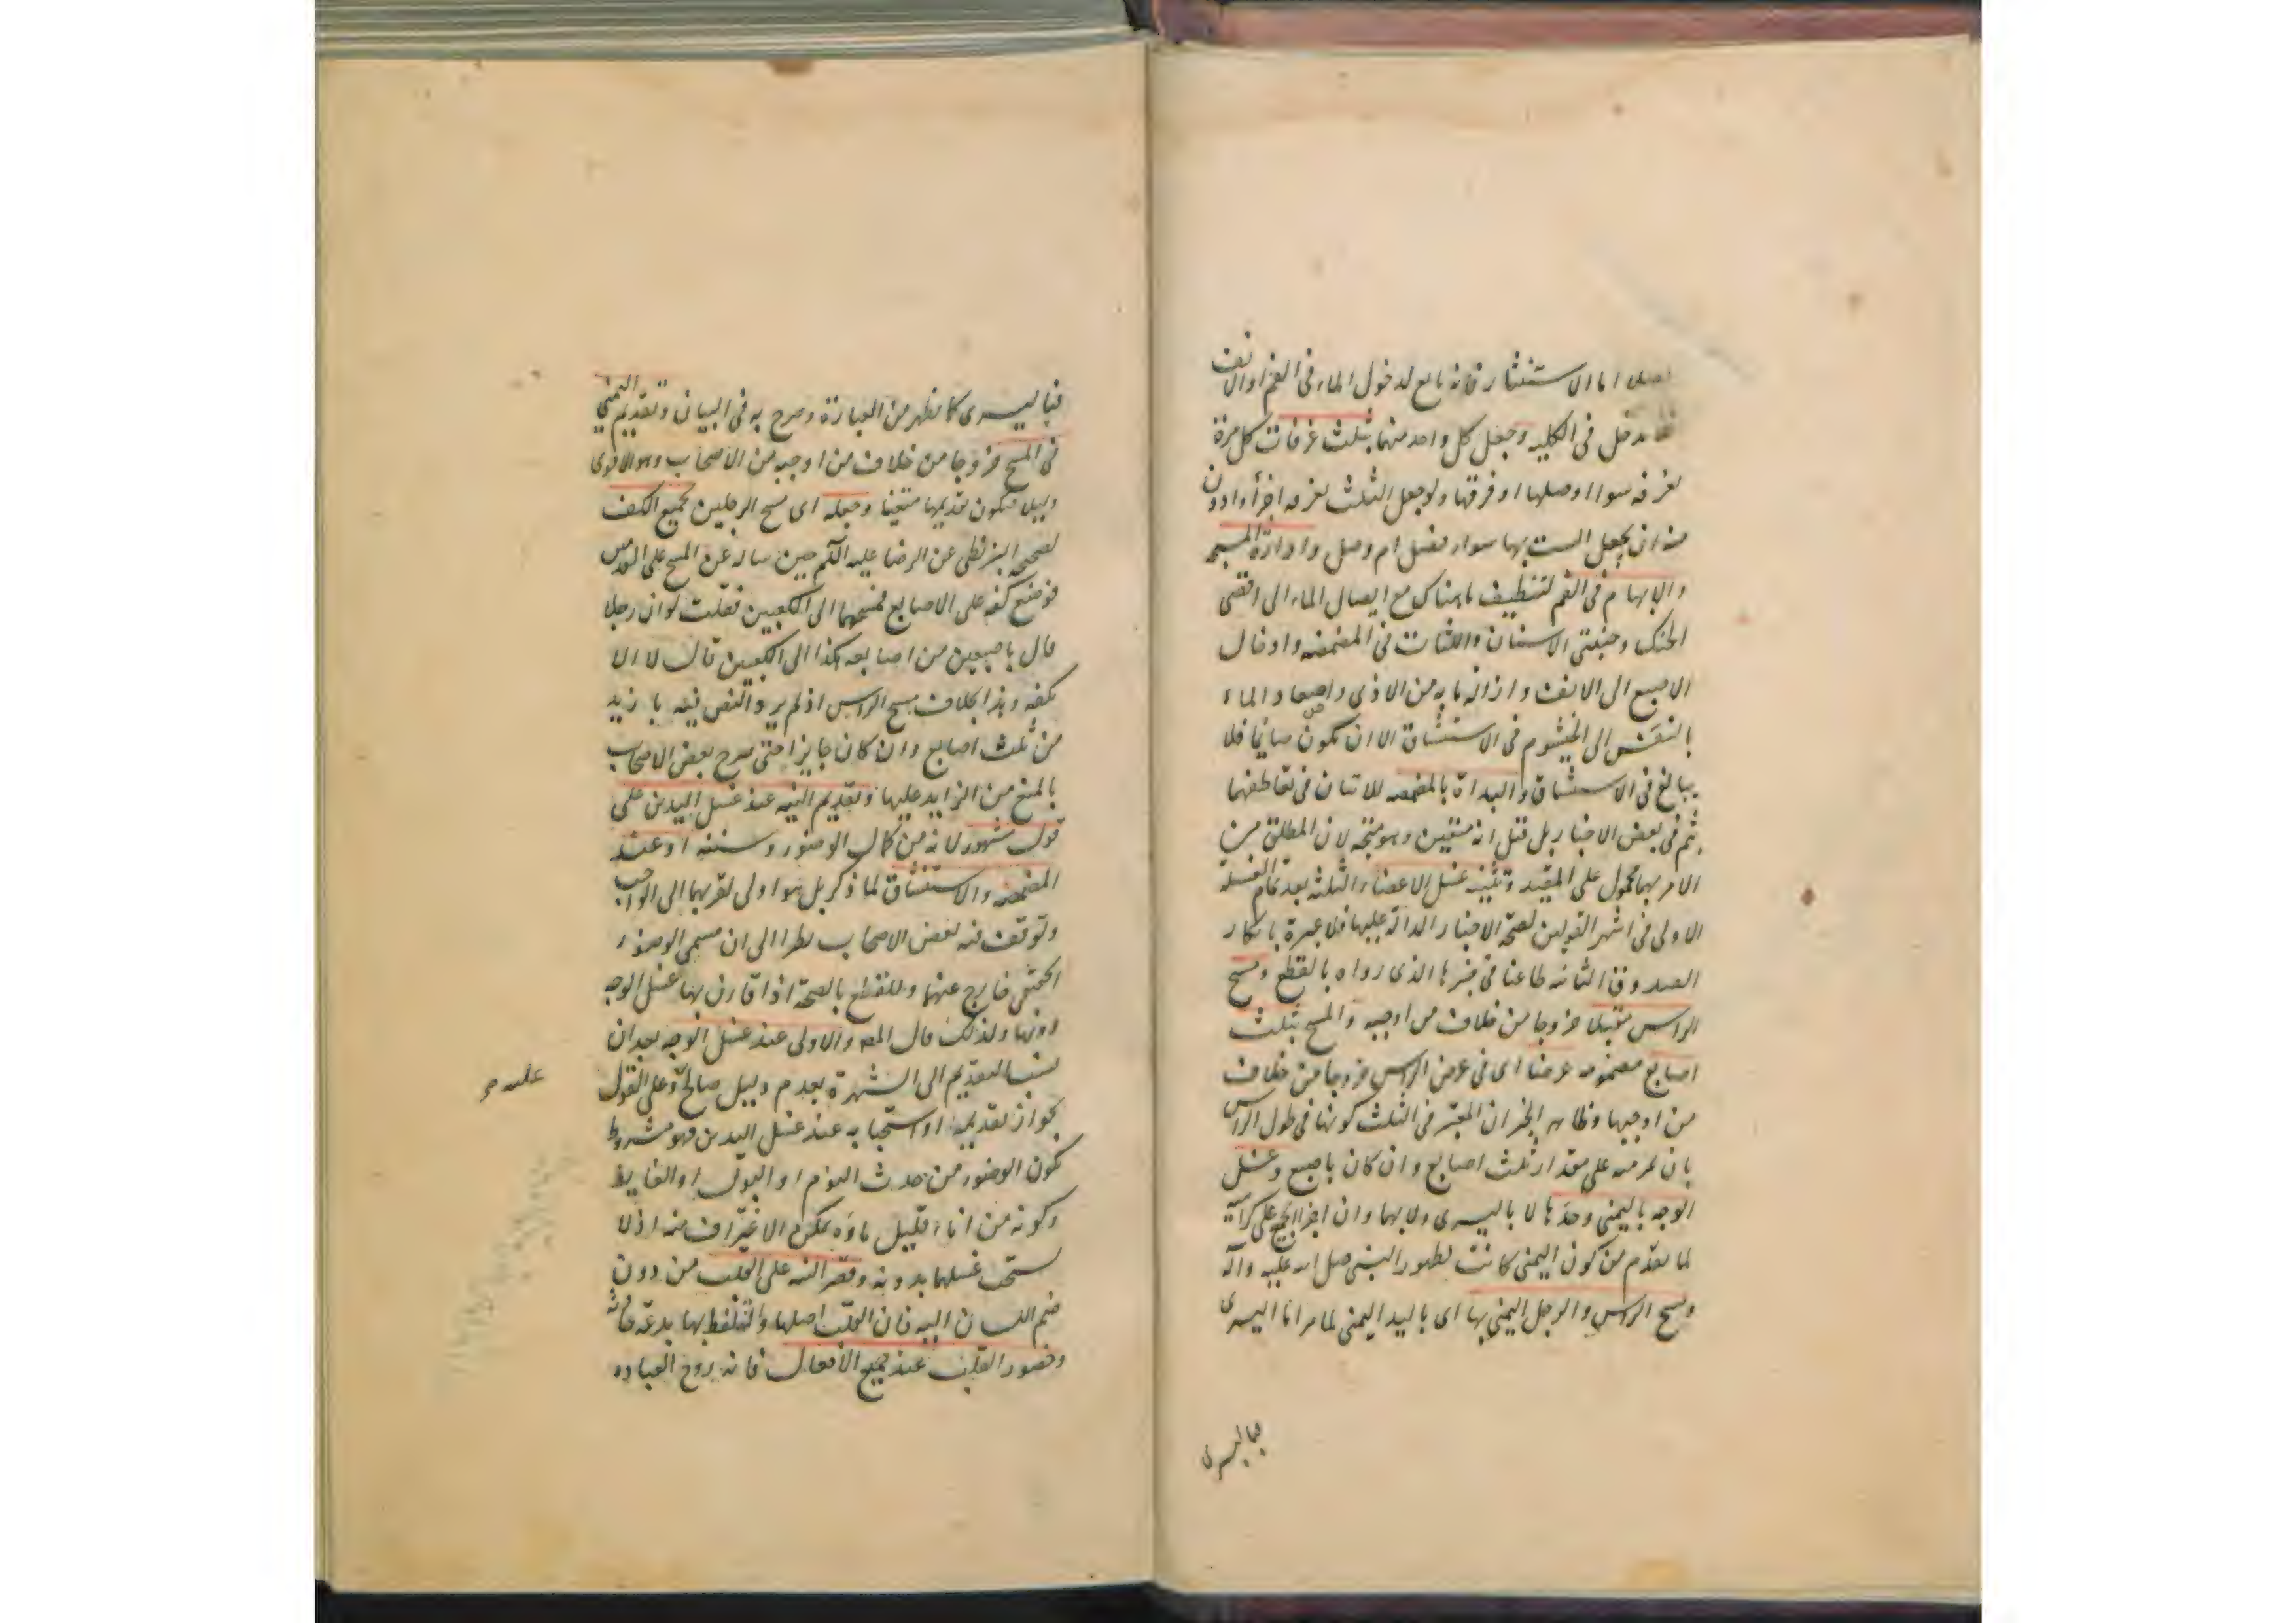 اما الاستنثار فانه تابع لدخول الماء فى الفم او الانف
يدخل فى الكلية وجعل كل واحد منهما بثلث غرفات كل مرة
بغرفه سواا وصلها او فرقها ولو جعل الثلث بغرفه اجزأ وادون
منه ان يجعل الست بها سواء فصل ام وصل وادارة المسبحه
والابهام فى الفم لتنظيف ما هناك مع ايصال الماء الى اقصى
الحنك وجنبتى الاسنان واللثات فى المضمضه وادخال
الاصبع الى الانف وازاله ما به من الاذى واصعاد الماء
بالنفس الى الخيشوم فى الاستنشاق الا ان يكون صائما فلا
يبالغ فى الاستنشاق والبداة بالمضمضه للاتيان فى تعاطفهما
بثم فى بعض الاخبار بل قيل انه متعين وهو متجه لان المطلق من
الامر بهما محمول على المقيد وتثنيه غسل الاعضاء الثلثه بعد تمام الغسلة
الاولى فى اشهر القولين لصحة الاخبار الدالة عليها فلا عبرة بانكار
الصدوق الثانيه طاعنا فى خبرها الذى رواه بالقطع ومسح
الراس مقبلا خروجا من خلاف من اوجبه والمسح بثلث
اصابع مضمومه عرضا اى فى عرض الراس خروجا من خلاف
من اوجبها وظاهر الخبر ان المعتبر فى الثلث كونها فى طول الراس
بان يمر منه على مقدار ثلث اصابع وان كان باصبع وغسل
الوجه باليمنى وحدها لا باليسرى ولا بهما وان اجزأ الجميع على كراهية
لما تقدم من كون اليمنى كانت لطهور النبى صلى الله عليه وآله
ومسح الراس والرجل اليمنى بها اى باليد اليمنى لما مر اما اليسرى
فباليسرى
فباليسرى كما يظهر من العبارة وصرح به فى البيان وتقديم اليمنى
فى المسح خروجا من خلاف من اوجبه من الاصحاب وهو الاقوى
دليلا فيكون تقديمها متعينا وجعله اى مسح الرجلين بجميع الكف
لصحيحه البزنطى عن الرضا عليه السلم حين ساله عن المسح على القدمين
فوضع كفه على الاصابع فمسحهما الى الكعبين فقلت لو ان رجلا
قال باصبعين من اصابعه هكذا الى الكعبين قال لا الا
بكفه وهذا بخلاف مسح الراس اذ لم يرد النص فيه بازيد
من ثلث اصابع وان كان جايزا حتى صرح بعض الاصحاب
بالمنع من الزايد عليها وتقديم النيه عند غسل اليدين على
قول مشهور لانه من كمال الوضوء وسننه او عند
المضمضه والاستنشاق لما ذكر بل هو اولى لقربهما الى الواجب
وتوقف فيه بعض الاصحاب نظرا الى ان مسمى الوضوء
الحقيقى خارج عنهما وللقطع بالصحة اذا قارن بها غسل الوجه
دونها ولذلك قال المصـ والاولى عند غسل الوجه بعد ان
نسب التقديم الى الشهرة بعدم دليل صالح وعلى القول
بجواز تقديمها او استحبابه عند غسل اليدين فهو مشروط
بكون الوضوء من حدث النوم او البول او الغايط
وكونه من اناء قليل ماؤه يمكن الاغتراف منه اذ لا
يستحب غسلهما بدونه وقصر النيه على القلب من دون
ضم اللسان اليه فان القلب اصلها والتلفظ بها بدعة
وحضور القلب عند جميع الافعال فانه روح العباده
عليه